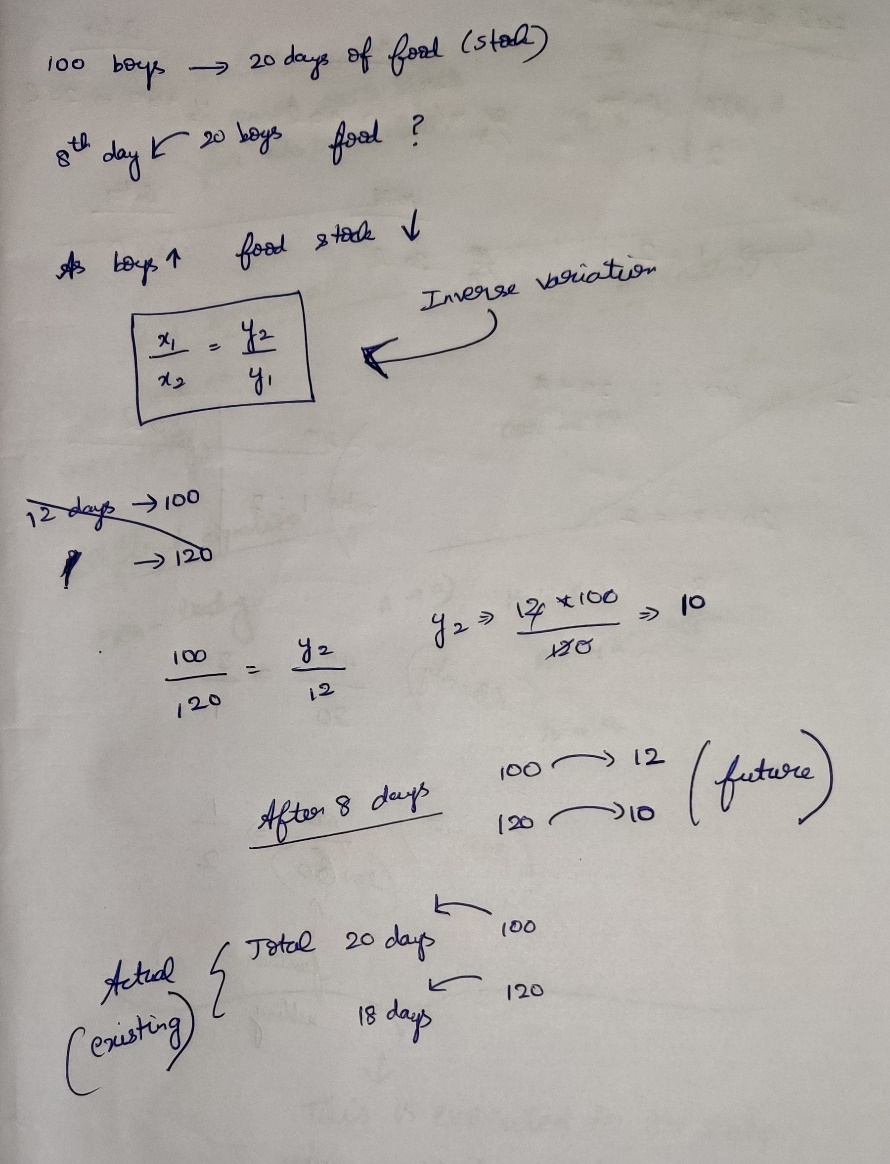 100 boys → 20 days of food (stock)
8th day ← 20 boys food ?
As boys ↑ food stock ↓
Inverse variation
x₁/x₂ = y₂/y₁
12 days → 100
→ 120
100/120 = y₂/12
y₂ ⇒ 12 × 100/120 ⇒ 10
After 8 days
100 → 12
120 → 10
(future)
Actual (existing) {
Total 20 days ← 100
18 days ← 120